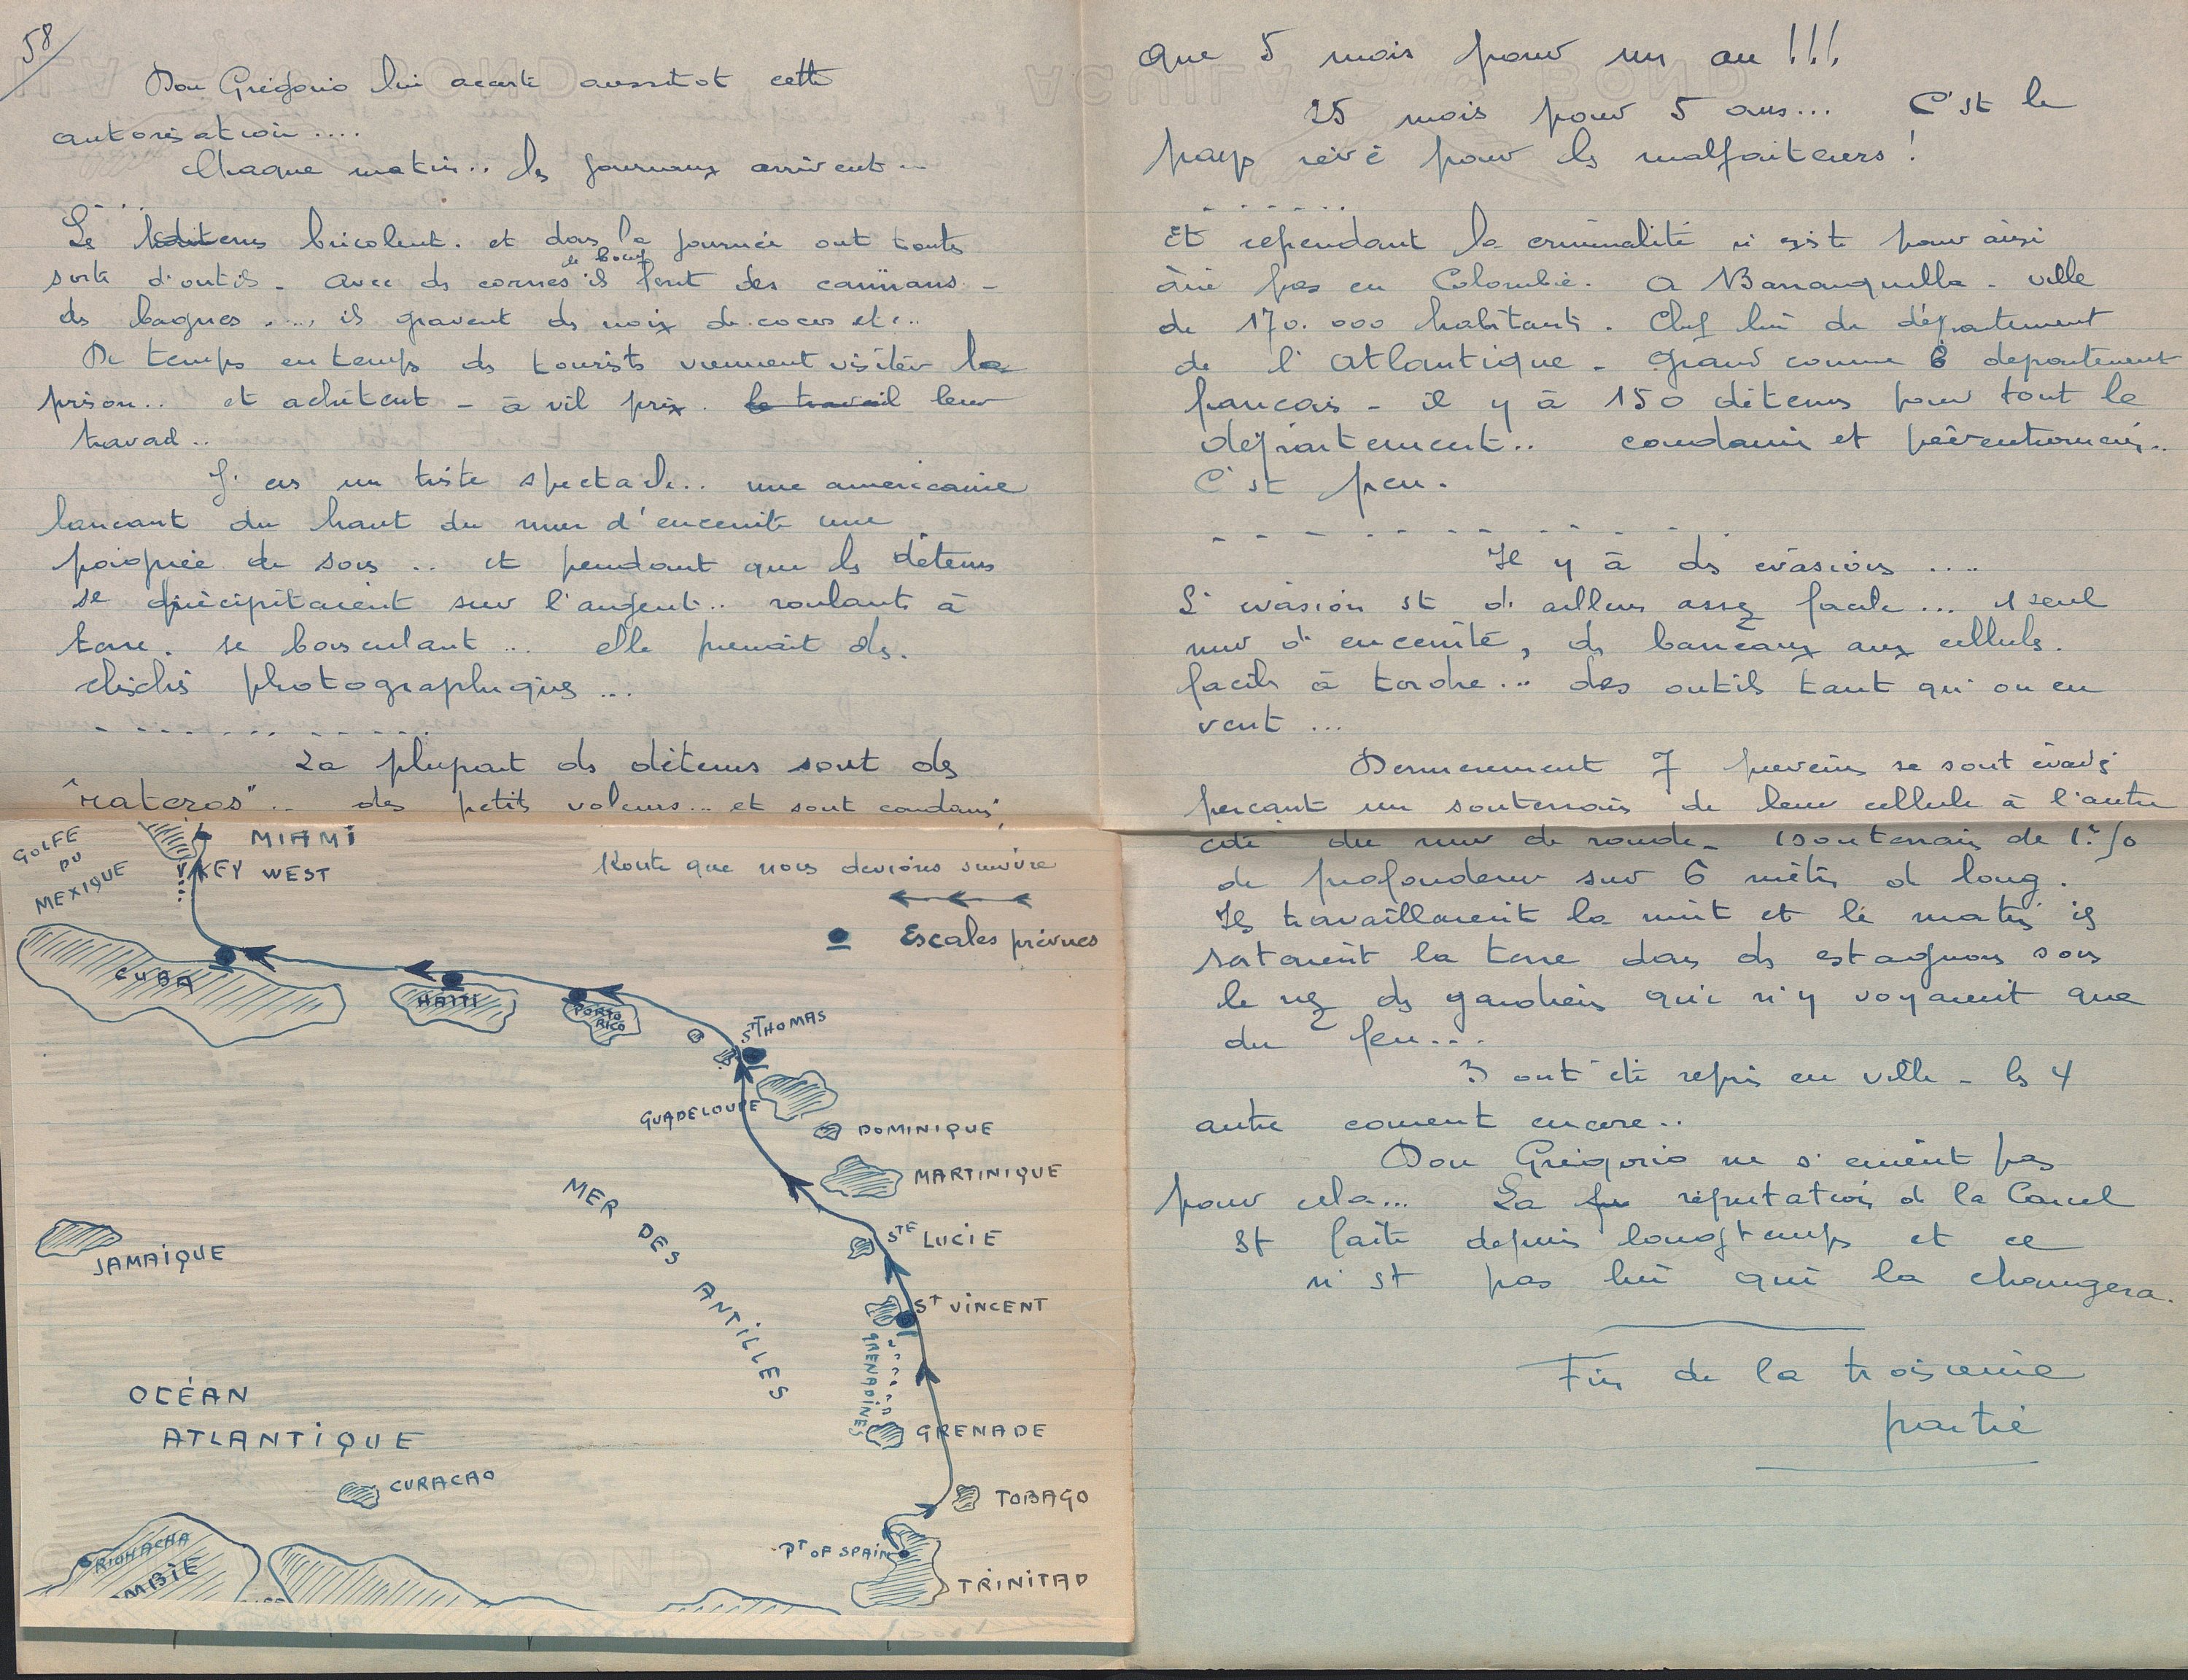 58
Don Grégorio lui acorte aussitot cette
autorisation ....
Chaque matin .. les journaux arrivent ..
Le détenus bricolent . et dans la journée ont toute
sorte d'outils - avec ds cornes de boeuf ils font des caïmans -
ds bagues ...., ils gravent ds noix de cocos etc..
De temps en temps ds tourists viennent visiter la
prison .. et achètent - à vil prix . le travail leur
travail ..
J'ai eu un triste spectacle .. une américaine
lancant du haut du mur d'enceinte une
poignée de sous .. et pendant que ls détenus
se précipitaient sur l'argent .. roulants à
terre . se bousculant ... elle prenait ds .
clichés photographiques ...
La plupart ds détenus sont des
"rateros" .. des petits voleurs ... et sont condamnés
GOLFE
DU
MEXIQUE
MIAMI
KEY WEST
Route que nous devions suivre
Escales prévues
CUBA
HAITI
PORTO
RICO
ST THOMAS
GUADELOUPE
DOMINIQUE
MARTINIQUE
MER DES ANTILLES
STE LUCIE
JAMAÏQUE
ST VINCENT
GRENADINES
OCÉAN
ATLANTIQUE
GRENADE
CURACAO
TOBAGO
RIOHACHA
MBIE
PT OF SPAIN
TRINITAD
que 5 mois pour un an !!!
25 mois pour 5 ans ... C'st le
pays rêvé pour ls malfaiteurs !
Et cependant la criminalité n'existe pour ainsi
dire pas en Colombie . A Barranquilla - ville
de 170.000 habitants . Chef lieu du département
de l'Atlantique - grand comme 6 departement
francais - il y à 150 détenus pour tout le
département .. condamnés et préventionnaires ..
C'st peu .
Il y à ds évasions ....
L'evasion st d'ailleurs assez facile ... 1 seul
mur d'enceinte, ds barreaux aux cellules .
facils à tordre ... des outils tant qu'on en
veut ...
Dernierement 7 prevenus se sont évadés
perçant un souterrain de leur cellule à l'autre
coté du mur de ronde - (souterrain de 1m50
de profondeur sur 6 mètres d long .
Ils travaillaient la nuit et le matin ils
sortaient la terre dans ds estagnons sous
le nez ds gardiens qui n'y voyaient que
du feu ...
3 ont été repris en ville - ls 4
autre courent encore ..
Don Grégorio ne s'émeut pas
pour cela ... La réputation d la Carcel
st faite depuis longtemps et ce
n'st pas lui qui la changera .
Fin de la troisieme
partie